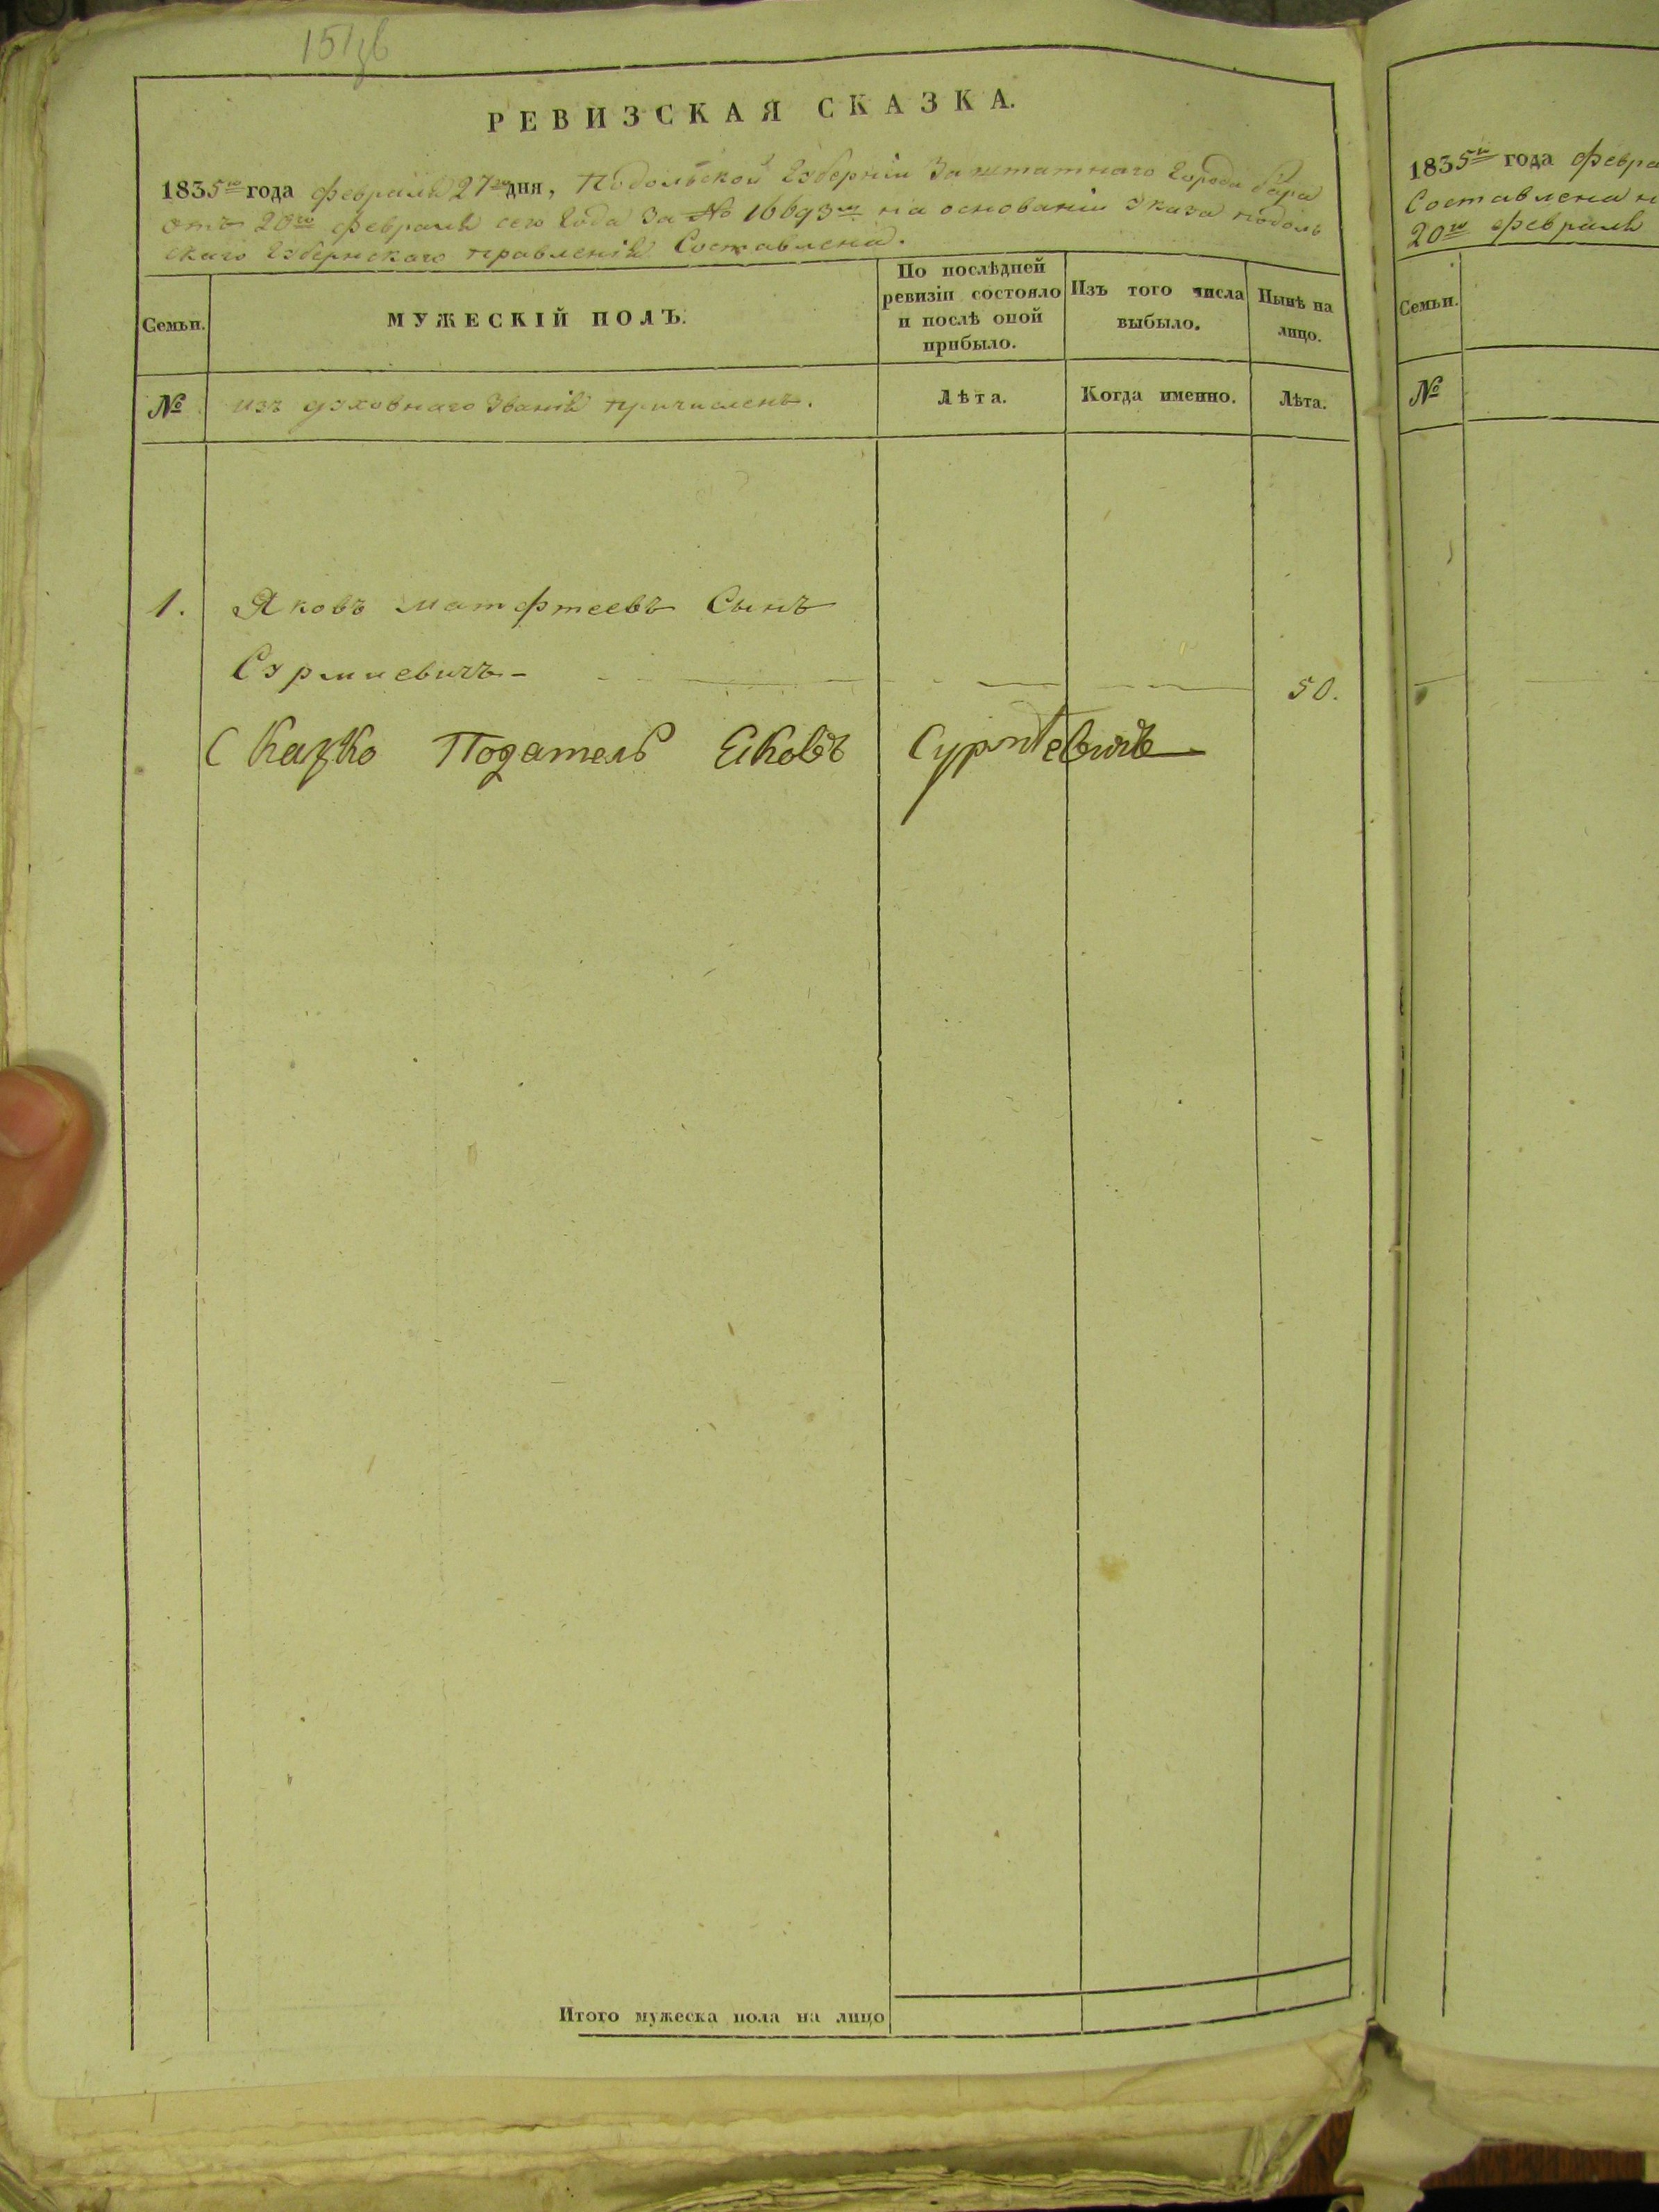 РЕВИЗСКАЯ СКАЗКА.
1835го года февраля 27го дня, Подольской Губерніи Заштатного Города Бара
отъ 20го февраля сего Года За № 16693м на основаніи Указа подоль
скаго Губернскаго правленія Составлена.
Семьи.
МУЖЕСКІЙ ПОЛЪ.
По послѣдней
ревизіи состояло
и послѣ оной
прибыло.
Изъ того числа
выбыло.
Нынѣ на
лицо.
№
изъ духовнаго Званія причисленъ.
Лѣта.
Когда именно.
Лѣта.
1. Яковъ матфтеевъ Сынъ
Сурмиевичъ 50.
Сказко Податель Еаковъ Сурмѣевичъ
Итого мужеска пола на лицо
1835го года февра
Составлена н
20го февраля
Семьи.
№